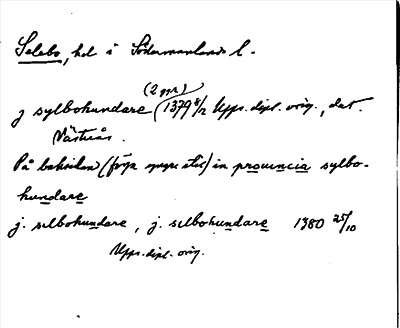 Selebo, hd i Södermanlands l.
(2 ggr)
j sylbohundare (1379 8/2 Upps. dipl. orig., dat.
Västerås.
På baksidan (föga yngre stil) in prouincia sylbo-
hundare
j. selbohundare, j. selbohundare 1380 25/10
Upps. dipl. orig.